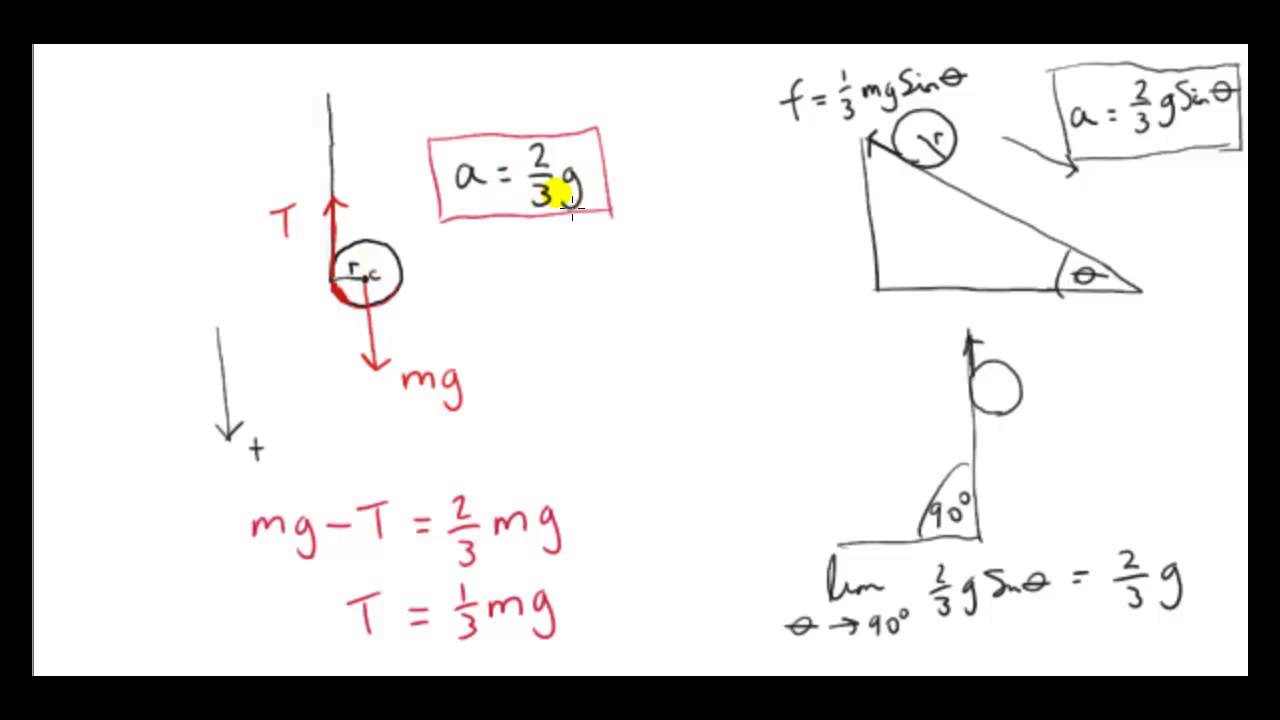 T
r c
mg
+
a = 2/3 g
mg - T = 2/3 mg
T = 1/3 mg
f = 1/3 mg sin θ
r
a = 2/3 g sin θ
θ
90°
lim θ → 90° 2/3 g sin θ = 2/3 g